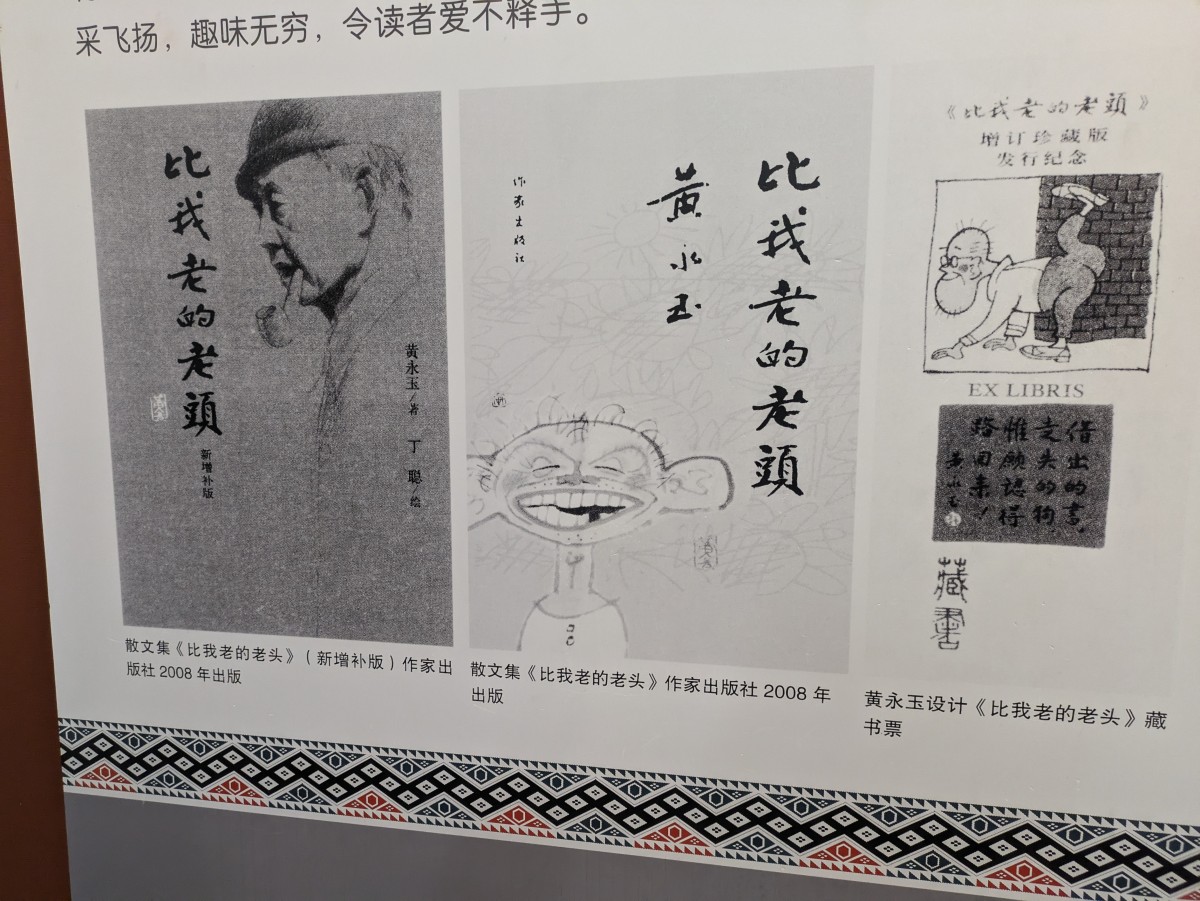 采飞扬，趣味无穷，令读者爱不释手。
比我老的老頭
新增补版
黄永玉/著 丁聪/绘
比我老的老頭
黃永玉
作家出版社
《比我老的老頭》
增订珍藏版
发行纪念
EX LIBRIS
借出的書，
走失的狗
惟願認得
路回来！
黄永玉
藏書
散文集《比我老的老头》（新增补版）作家出
版社 2008 年出版
散文集《比我老的老头》作家出版社 2008 年
出版
黄永玉设计《比我老的老头》藏
书票